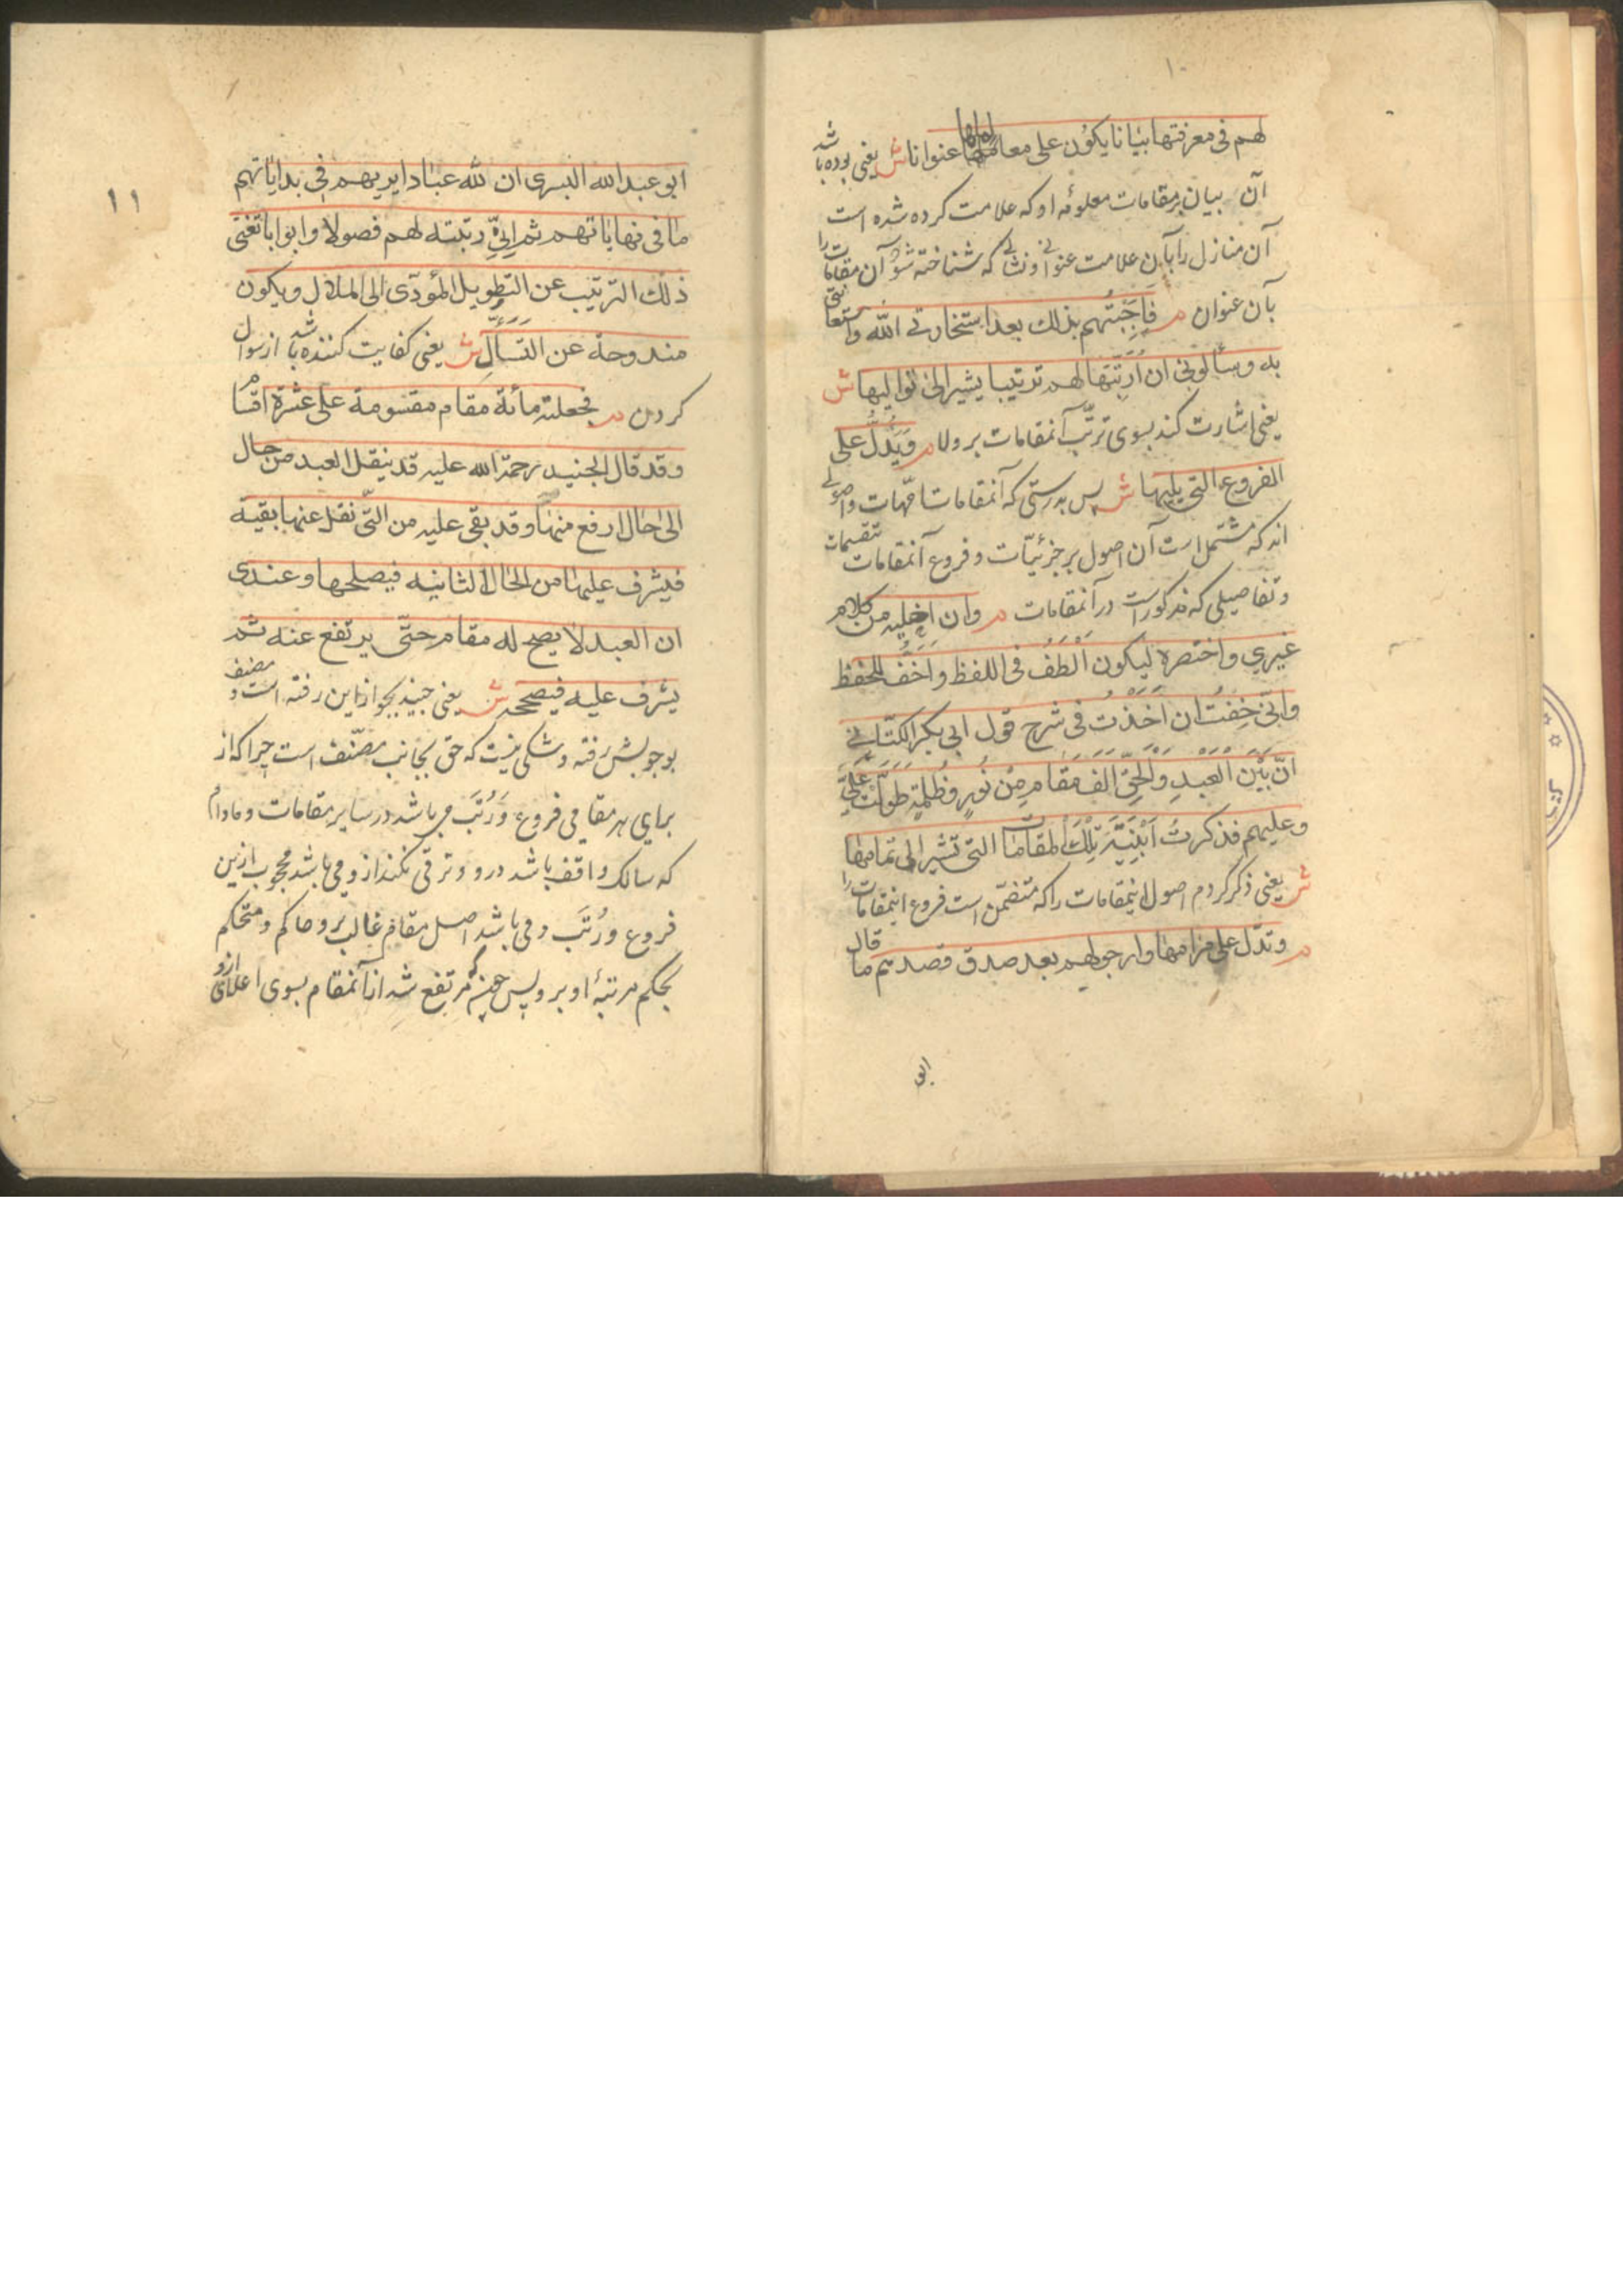 ۱۰
لهم فی معرفتها بیانا یکون علی معالمها عنوانا ش یعنی بوده باشد
آن بیان بر مقامات معلومه او که علامت کرده شده است
آن منازل را بآن علامت عنوانی و نشانی که شناخته شود آن مقامات را
بآن عنوان م فَاَجَبْتُهم بذلك بعد استخارتی اللّٰه واستعانتی
به وسألونی ان اُرَتِّبَها لهم ترتیبا یشیر الی توالیها ش
یعنی اشارت کند بسوی ترتّب آنمقامات بر ولا م وَیَدُلُّ علی
الفروع التی یلیها ش پس بدرستی که آنمقامات امّهات واصولی
اند که مشتمل است آن اصول بر جزئیّات و فروع آنمقامات تقسیمات
و تفاصیلی که مذکور است در آنمقامات م وان اخلیه من کلام
غیری و اختصره لیکون اَلْطَفُ فی اللفظ و اَخَفُّ للحفظ
وانّی خِفْتُ ان اَخَذْتُ فی شرح قول ابی بکر الکتّانی
انّ بَیْنَ الْعَبْدِ وَالْحَقِّ اَلفَ مَقَامٍ مِنْ نُورٍ وَظُلْمَةٍ طَوَّلْتُ عَلَیَّ
و علیهم فذکرتُ اَبْنِیَةَ تِلْكَ المقامات التی تشیر الی تمامها
ش یعنی ذکر کردم اصول اینمقامات را که متضمّن است فروع اینمقامات را
م و تدلّ علی مرامها و ارجو لهم بعد صدق قصدهم ما قال
ابو
۱۱
ابو عبد الله البسری ان للّٰه عبادا یریهم فی بدایاتهم
ما فی نهایاتهم ثم اِنِّی رتبته لهم فصولا و ابوابا تغنی
ذلك الترتیب عن التطویل المؤدّی الی الملال و یکون
مندوحة عن التسأل ش یعنی کفایت کننده باشد از سوال
کردن م فجعلته مائة مقام مقسومة علی عشرة اقسام
و قد قال الجنید رحمة الله علیه قد ینقل العبد من حال
الی حال ارفع منها و قد بقی علیه من التی نقل عنها بقیة
فیشرف علیها من الحال الثانیة فیصلحها و عندی
ان العبد لا یصح له مقام حتّی یرتفع عنه ثم
یشرف علیه فیصححه ش یعنی جنید بجواز این رفته است و مصنف
بوجوبش رفته و شکی نیست که حق بجانب مصنّف است چرا که از
برای هر مقامی فروع و رُتَب می باشد در سایر مقامات و مادام
که سالک واقف باشد درو و ترقی نکند ازو می باشد محجوب ازین
فروع و رُتَب و می باشد اصل مقام غالب برو و حاکم و متحکم
بحکم مرتبهٔ او برو پس هرگه مرتفع شد از آنمقام بسوی اعلای ازو